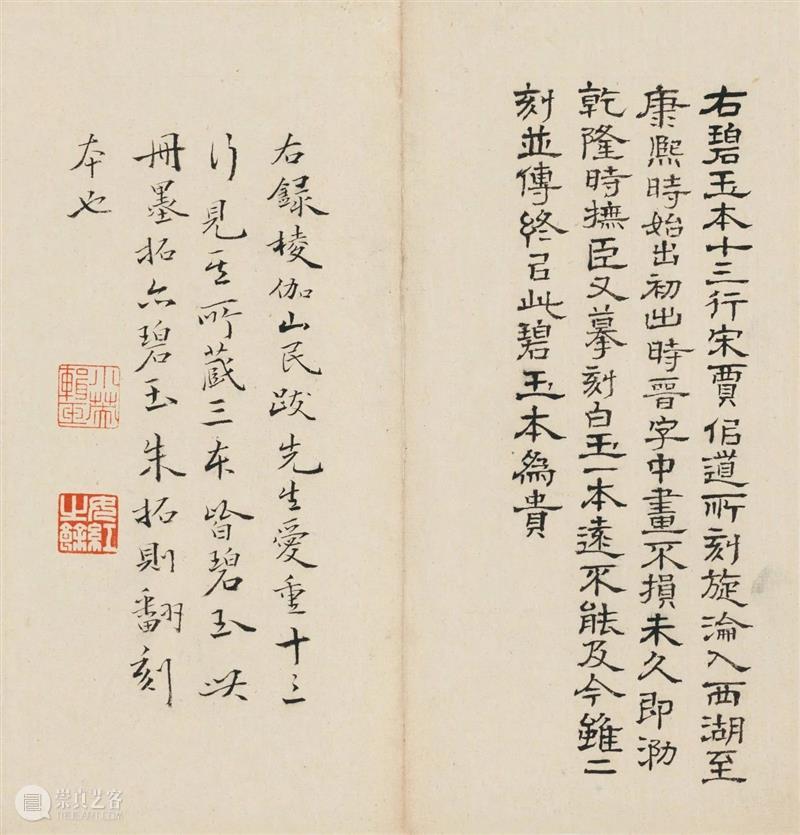 右碧玉本十三行宋賈佀道所刻旋淪入西湖至
康熙時始出初出時晉字中畫不損未久即泐
乾隆時撫臣又摹刻白玉一本遠不能及今雖二
刻並傳終㠯此碧玉本為貴
右錄棱伽山民跋先生愛重十三
行見其所藏三本皆碧玉此
冊墨拓亦碧玉朱拓則翻刻
本也
崇真艺客
TRUEART.COM